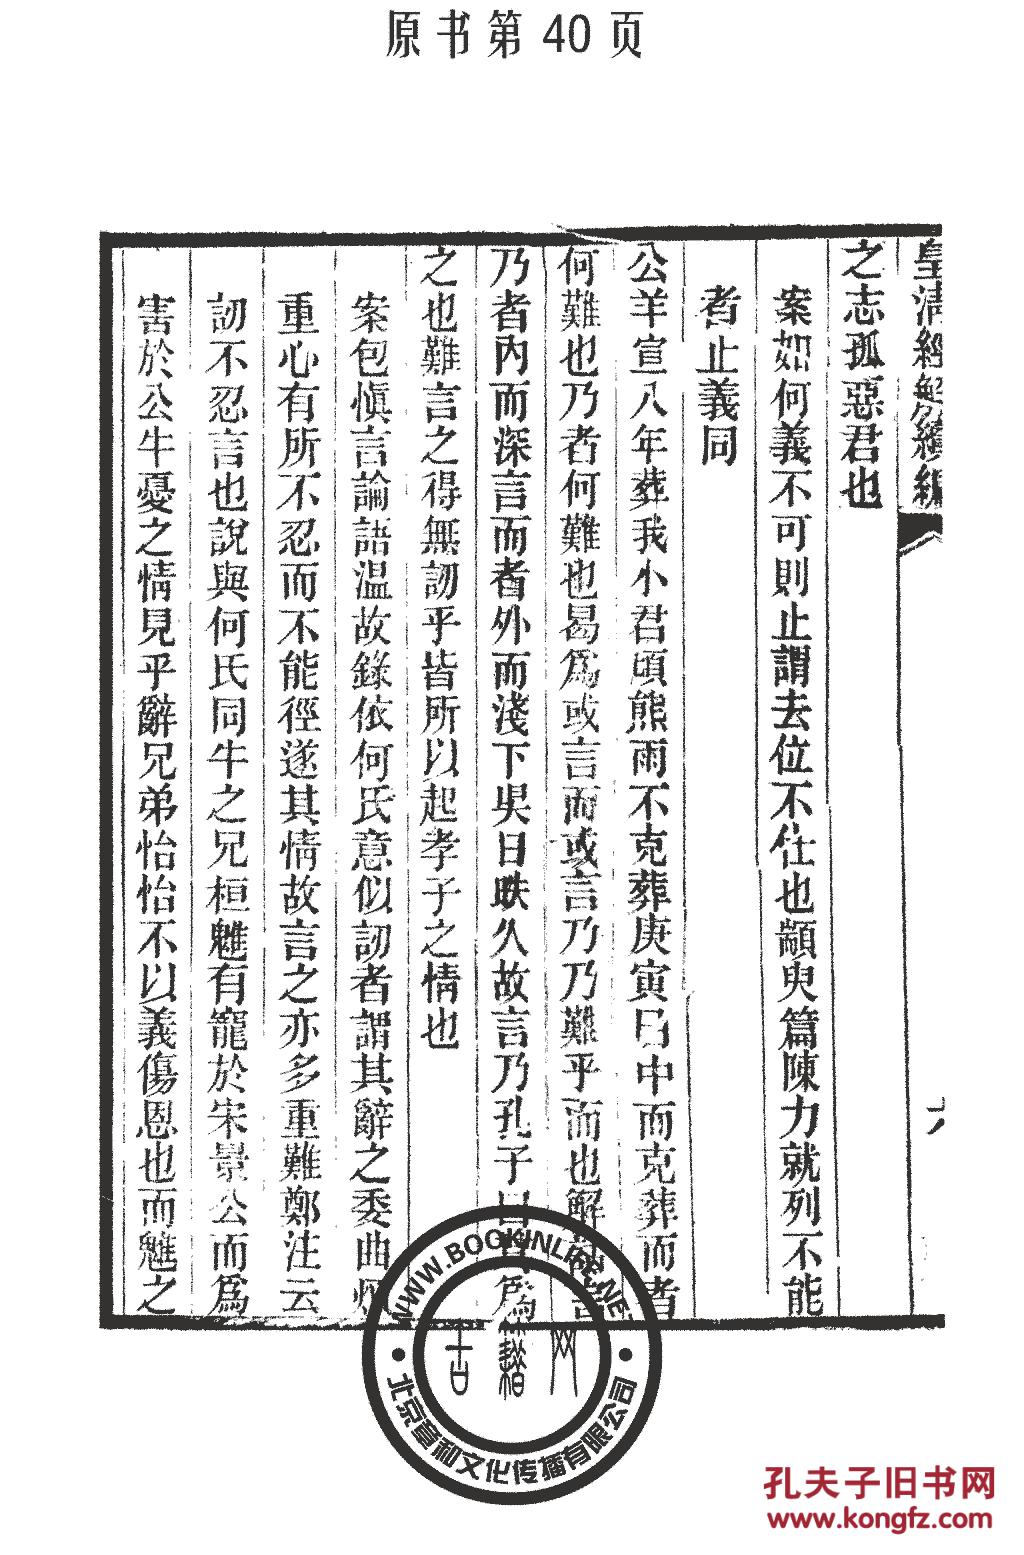 原书第 40 页
皇清經解續編
之志孤惡君也
案如何義不可則止謂去位不仕也顓臾篇陳力就列不能
者止義同
公羊宣八年葬我小君頃熊雨不克葬庚寅日中而克葬而者
何難也乃者何難也曷爲或言而或言乃乃難乎而也解詁言
乃者內而深言而者外而淺下昃日昳久故言乃孔子曰其爲
之也難言之得無訒乎皆所以起孝子之情也
案包愼言論語温故錄依何氏意似訒者謂其辭之委曲煩
重心有所不忍而不能徑遂其情故言之亦多重難鄭注云
訒不忍言也說與何氏同牛之兄桓魋有寵於宋景公而爲
害於公牛憂之情見乎辭兄弟怡怡不以義傷恩也而魋之
WWW.BOOKINLIFE.NET
古籍网
北京章和文化传播有限公司
孔夫子旧书网
www.kongfz.com